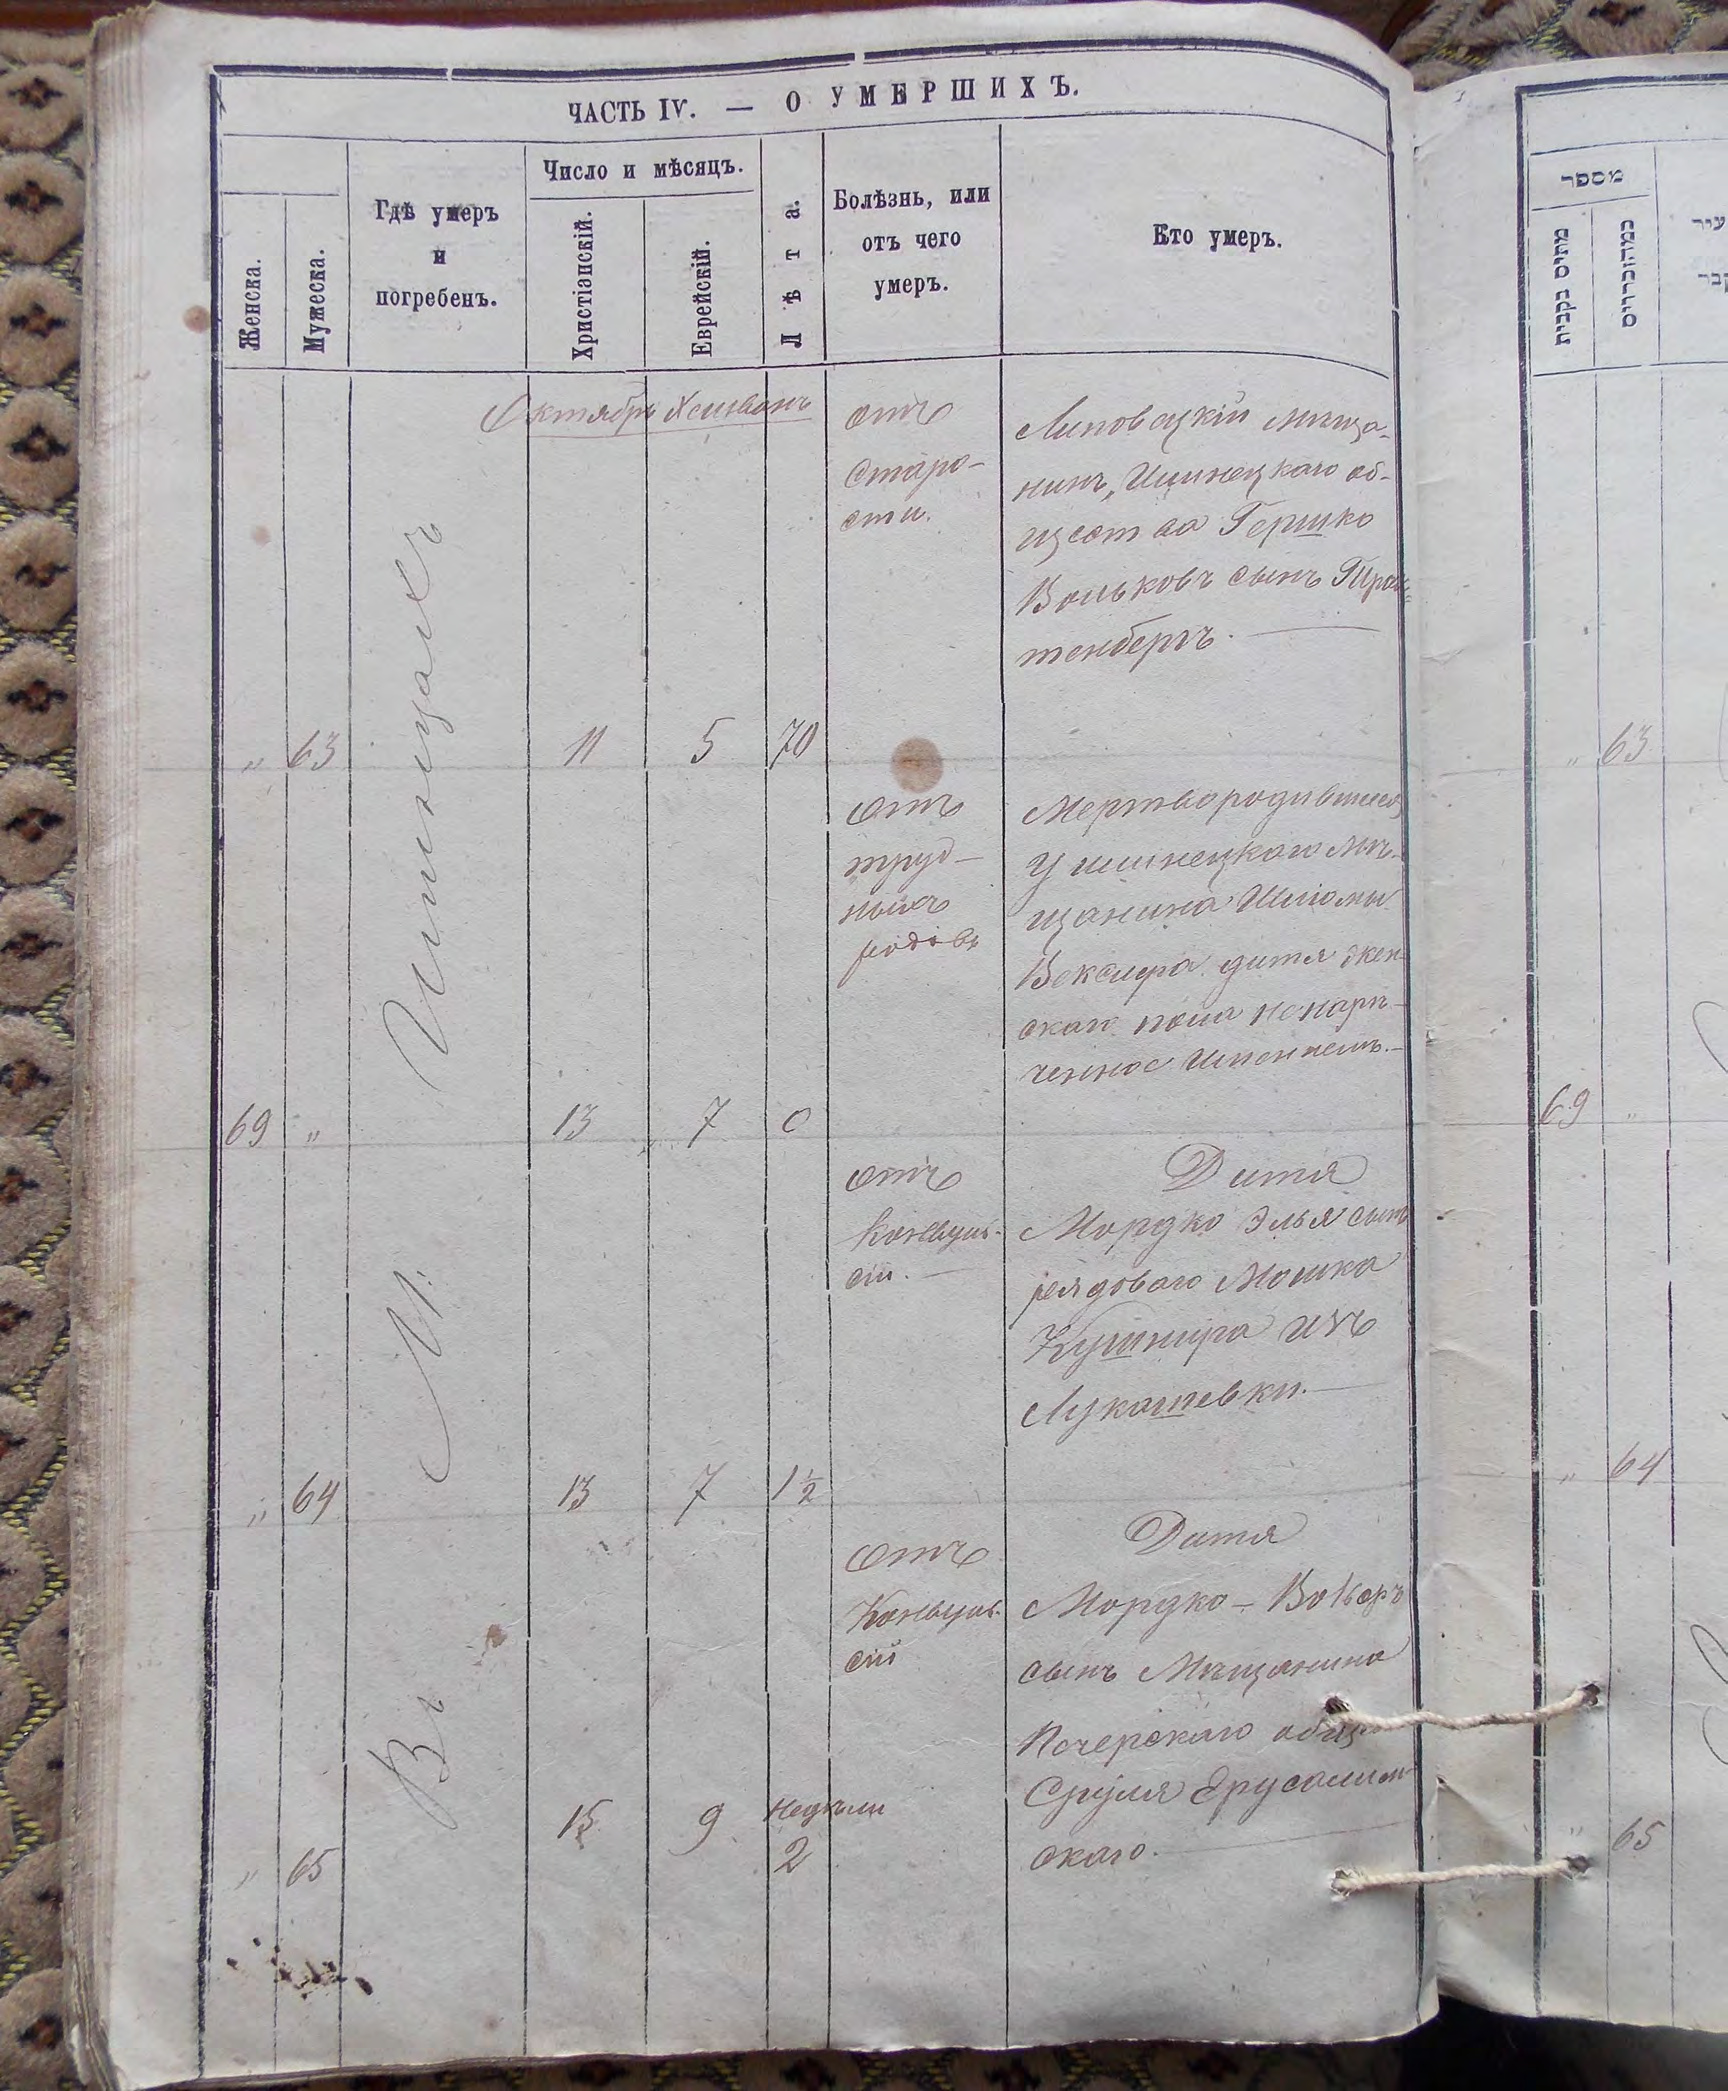 ЧАСТЬ IV. — О УМЕРШИХЪ.
Женска.
Мужеска.
Гдѣ умеръ
и
погребенъ.
Число и мѣсяцъ.
Христіанскій.
Еврейскій.
Лѣта.
Болѣзнь, или
отъ чего
умеръ.
Кто умеръ.
Октябрь Хешванъ
Въ М. Ильинцахъ
„ 63 11 5 70
отъ
старо-
сти.
Липовецкій мѣща-
нинъ, Илинецкаго об-
щества Гершко
Вольковъ сынъ
тенбергъ.
69 „ 13 7 0
отъ
труд-
ныхъ
родовъ
Мертвородившееся
у илинецкого мѣ-
щанина Шлiомы
Векслера дитя жен-
скаго пола ненарѣ-
ченное имянемъ.
„ 64 13 7 1½
отъ
конвуль-
сіи.
Дитя
Мордко Элья сынъ
рядоваго Мошка
Кушнира изъ
Лукашевки.
„ 65 15 9 недѣли 2
отъ
Конвуль-
сій
Дитя
Мордко-Волько
сынъ Мѣщанина
Печерскаго общ
Сруля Ерусалим-
скаго.
מספר
„ 63
69 „
„ 64
„ 65